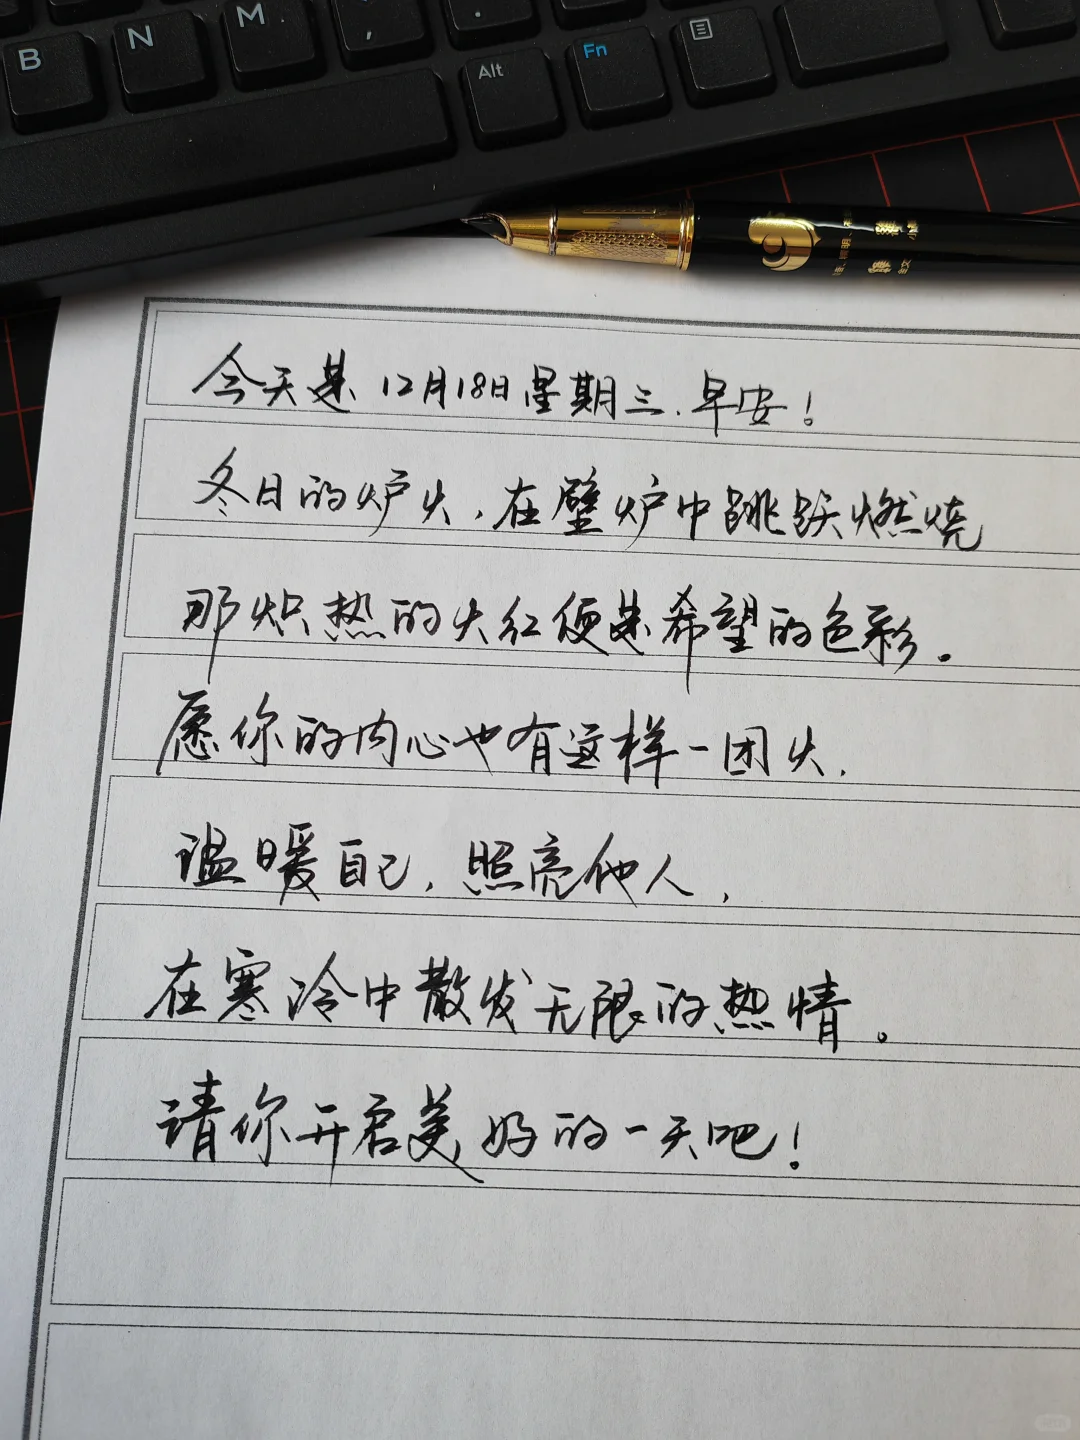 B N M , .
Alt Fn
今天是12月18日星期三.早安!
冬日的炉火,在壁炉中跳跃燃烧
那炽热的火红便是希望的色彩。
愿你的内心也有这样一团火.
温暖自己,照亮他人,
在寒冷中散发无限的热情。
请你开启美好的一天吧!